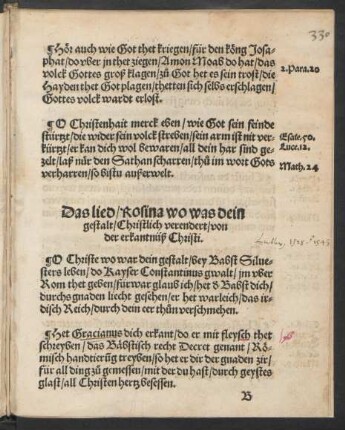 330
¶Hör auch wie Got thet kriegen/für den köng Josa-
phat/do vber jn thet ziegen/Amon Moab do hat/das
volck Gottes groß klagen/zů Got het es sein trost/die
Hayden thet Got plagen/thetten sich selbs erschlagen/
Gottes volck wardt erlost.
2.Para.20
¶O Christenhait merck eben/wie Got sein feinde
stürtzt/die wider sein volck streben/sein arm ist nit ver-
kürtzt/er kan dich wol bewaren/all dein har sind ge-
zelt/laß nůr den Sathan scharren/thů im wort Gots
verharren/so bistu außerwelt.
Esaie.50.
Luce.12.
Math.24
Das lied/Rosina wo was dein
gestalt/Christlich verendert/von
der erkantnüß Christi.
¶O Christe wo war dein gestalt/bey Babst Silue-
sters leben/do Kayser Constantinus gwalt/jm vber
Rom thet geben/fürwar glaub ich/het d Babst dich/
durchs gnaden liecht gesehen/er het warleich/das ir-
disch Reich/durch dein eer thün verschmehen.
¶Het Gracianus dich erkant/do er mit fleysch thet
schreyben/das Bäbstisch recht Decret genant/Rö-
misch handtierüg treyben/so het er dir der gnaden zir/
für all ding zů gemessen/mit der du hast/durch geystes
glast/all Christen hertz besessen.
B